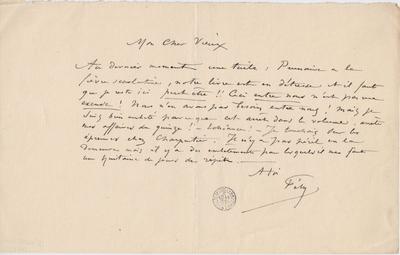 Mon Cher Vieux
Au dernier moment une tuile; Pumaire a la
fièvre scarlatine, notre livre est en détresse et il faut
que je reste ici peut être!! Ceci entre nous n'est pas une
excuse! Nous n'en avons pas besoin entre nous! mais je
suis bien embêté parce que cet arrêt dans le volume, arrête
mes affaires du quinze! – Je touchais sur les
épreuves chez Charpentier. Il n'y a pas péril en la
demeure mais il y a des embêtements pour lesquels il me faut
une quinzaine de jours de répit.
A toi